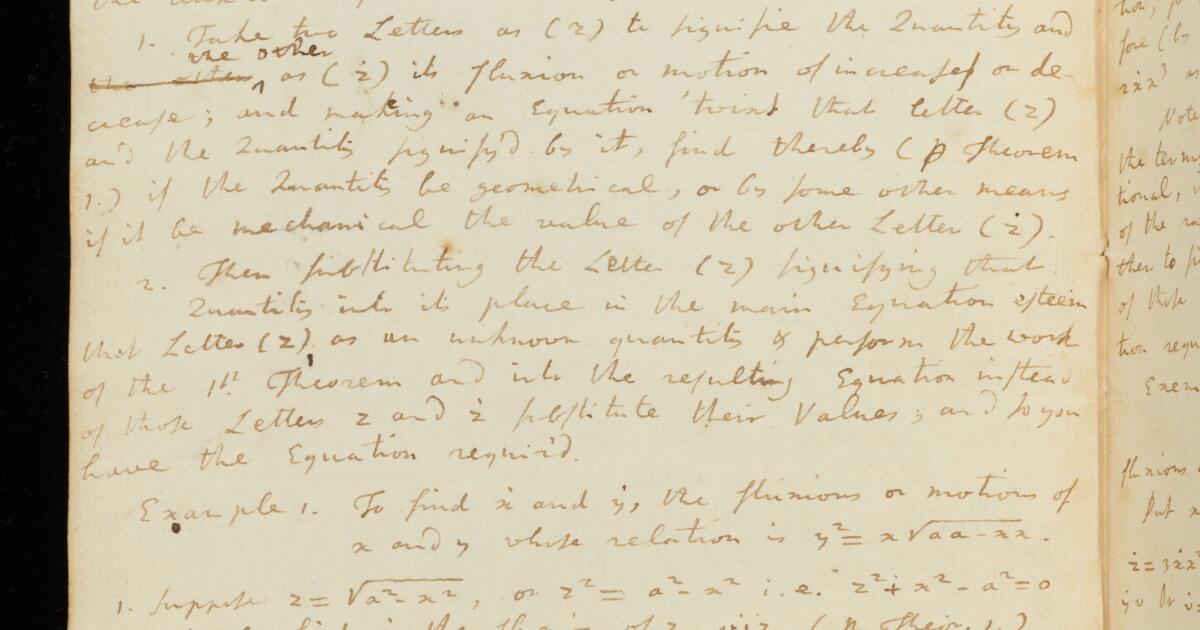 1. Take two Letters as (z) to signifie the Quantitis and
the other
the other ^ as (ż) its fluxion or motion of increase or de-
crease; and making an Equation 'twixt that letter (z)
and the Quantitis signify'd by it, find thereby (p Theorem
1.) if the Quantitis be geometrical, or by some other means
if it be mechanical the value of the other Letter (ż).
2. Then substituting the Letter (z) signifying that
Quantitis into its place in the main Equation esteem
that Letter (z) as an unknown quantitis & perform the work
of the 1st. Theorem and into the resulting Equation instead
of those Letters z and ż substitute their Values; and so you
have the Equation requir'd.
Example 1. To find ẋ and ẏ, the fluxions or motions of
x and y whose relation is y² = x√aa-xx.
1. Suppose z = √a²-x², or z² = a²-x² i.e. z²+x²-a²=0
tion,
fore (by
Note
the terms
tional,
of the
ther to
of those
tion
Exem
fluxions
Put x